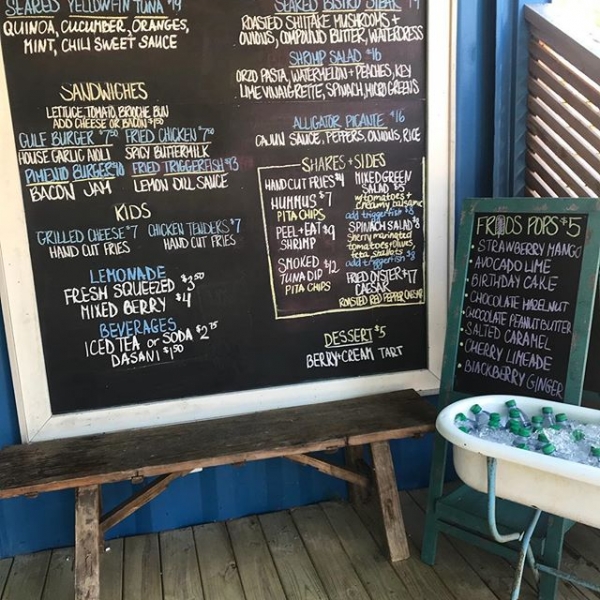 SEARED YELLOWFIN TUNA $14
QUINOA, CUCUMBER, ORANGES,
MINT, CHILI SWEET SAUCE
SANDWICHES
LETTUCE, TOMATO, BRIOCHE BUN
ADD CHEESE OR BACON $1.50
GULF BURGER $7.50 FRIED CHICKEN $7.50
HOUSE GARLIC AIOLI SPICY BUTTERMILK
PIMENTO BURGER $10 FRIED TRIGGERFISH $13
BACON JAM LEMON DILL SAUCE
KIDS
GRILLED CHEESE $7 CHICKEN TENDERS $7
HAND CUT FRIES HAND CUT FRIES
LEMONADE
FRESH SQUEEZED $3.50
MIXED BERRY $4
BEVERAGES
ICED TEA or SODA $2.75
DASANI $1.50
SEARED BISTRO STEAK
ROASTED SHIITAKE MUSHROOMS +
ONIONS, COMPOUND BUTTER, WATERCRESS
SHRIMP SALAD $16
ORZO PASTA, WATERMELON + PEACHES, KEY
LIME VINAIGRETTE, SPINACH, MICRO GREENS
ALLIGATOR PICANTE $16
CAJUN SAUCE, PEPPERS, ONIONS, RICE
SHARES + SIDES
HAND CUT FRIES $4
HUMMUS $7
PITA CHIPS
PEEL + EAT $9
SHRIMP
SMOKED $12
TUNA DIP
PITA CHIPS
MIXED GREEN
SALAD $5
w/ tomatoes +
creamy balsamic
add triggerfish $8
SPINACH SALAD $8
Sherry marinated
tomatoes + olives,
feta, shallots
add triggerfish $8
FRIED OYSTER $17
CAESAR
ROASTED RED PEPPER CAESAR
DESSERT $5
BERRY + CREAM TART
POPS $5
• STRAWBERRY MANGO
• AVOCADO LIME
• BIRTHDAY CAKE
• CHOCOLATE HAZELNUT
• CHOCOLATE PEANUT BUTTER
• SALTED CARAMEL
• CHERRY LIMEADE
• BLACKBERRY GINGER